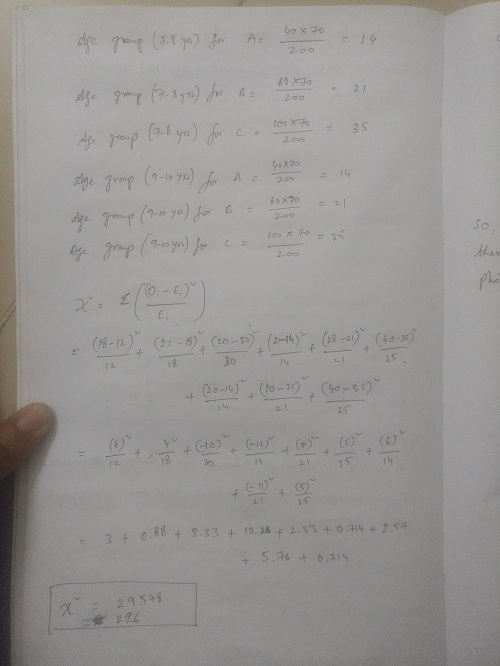 Age group (7-8 yrs) for A = 40×70/200 = 14
Age group (7-8 yrs) for B = 60×70/200 = 21
Age group (7-8 yrs) for C = 100×70/200 = 35
Age group (9-10 yrs) for A = 40×70/200 = 14
Age group (9-10 yrs) for B = 60×70/200 = 21
Age group (9-10 yrs) for C = 100×70/200 = 35
So,
χ² = Σ((Oi - Ei)²/Ei)
= (18-12)²/12 + (22-18)²/18 + (20-30)²/30 + (2-14)²/14 + (28-21)²/21 + (40-35)²/35
+ (20-14)²/14 + (10-21)²/21 + (40-35)²/35
= (6)²/12 + 4²/18 + (-10)²/30 + (-12)²/14 + (7)²/21 + (5)²/35 + (6)²/14
+ (-11)²/21 + (5)²/35
= 3 + 0.88 + 3.33 + 10.28 + 2.33 + 0.714 + 2.57
+ 5.76 + 0.714
χ² = 29578
= 29.6